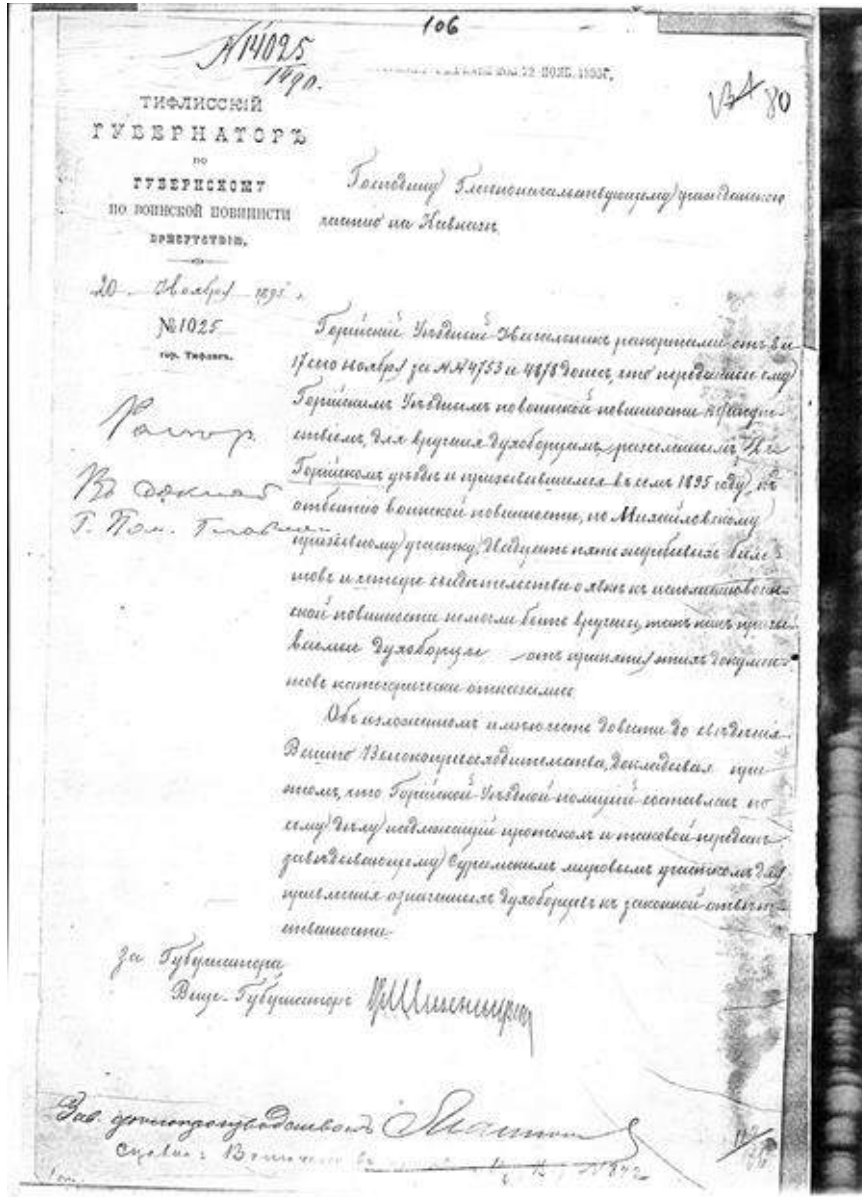 106
№ 14025
1890.
22 НОЯБ. 1895Г.
80
ТИФЛИССКІЙ
ГУБЕРНАТОРЪ
ПО
ГУБЕРНСКОМУ
ПО ВОИНСКОЙ ПОВИННСТИ
ПРИСУТСТВІЮ.
Господину Главноначальствующему гражданскою
частію на Кавказѣ
20 Ноября 1895 г.
№1025
гор. Тифлисъ.
Горійскій Уѣздный Начальникъ рапортами отъ 8 и
17 сего ноября за №№ 4753 и 4878 донесъ, что переданные ему
Горійскимъ Уѣзднымъ по воинской повинности Присут-
ствіемъ, для врученія духоборцамъ, разселеннымъ въ
Горійскомъ уѣздѣ и призывавшимся въ семъ 1895 году къ
отбытію воинской повинности, по Михайловскому
призывному участку, двадцать пять жеребьевыхъ биле-
товъ и четыре свидѣтельства о явкѣ къ исполненію воин-
ской повинности не могли быть вручены, такъ какъ призы-
ваемые духоборцы отъ принятія этихъ докумен-
товъ категорически отказались
Объ изложенномъ имѣю честь довести до свѣдѣнія
Вашего Высокопревосходительства, докладывая при
этомъ, что Горійской Уѣздной полиціей составленъ по
сему дѣлу надлежащій протоколъ и таковой переданъ
завѣдывающему Сурамскимъ мировымъ участкомъ для
привлеченія означенныхъ духоборцевъ къ законной отвѣт-
ственности.
Въ докладъ
Г. Пом. Главнон
За Губернатора
Вице-Губернаторъ
Зав. дѣлопроизводствомъ